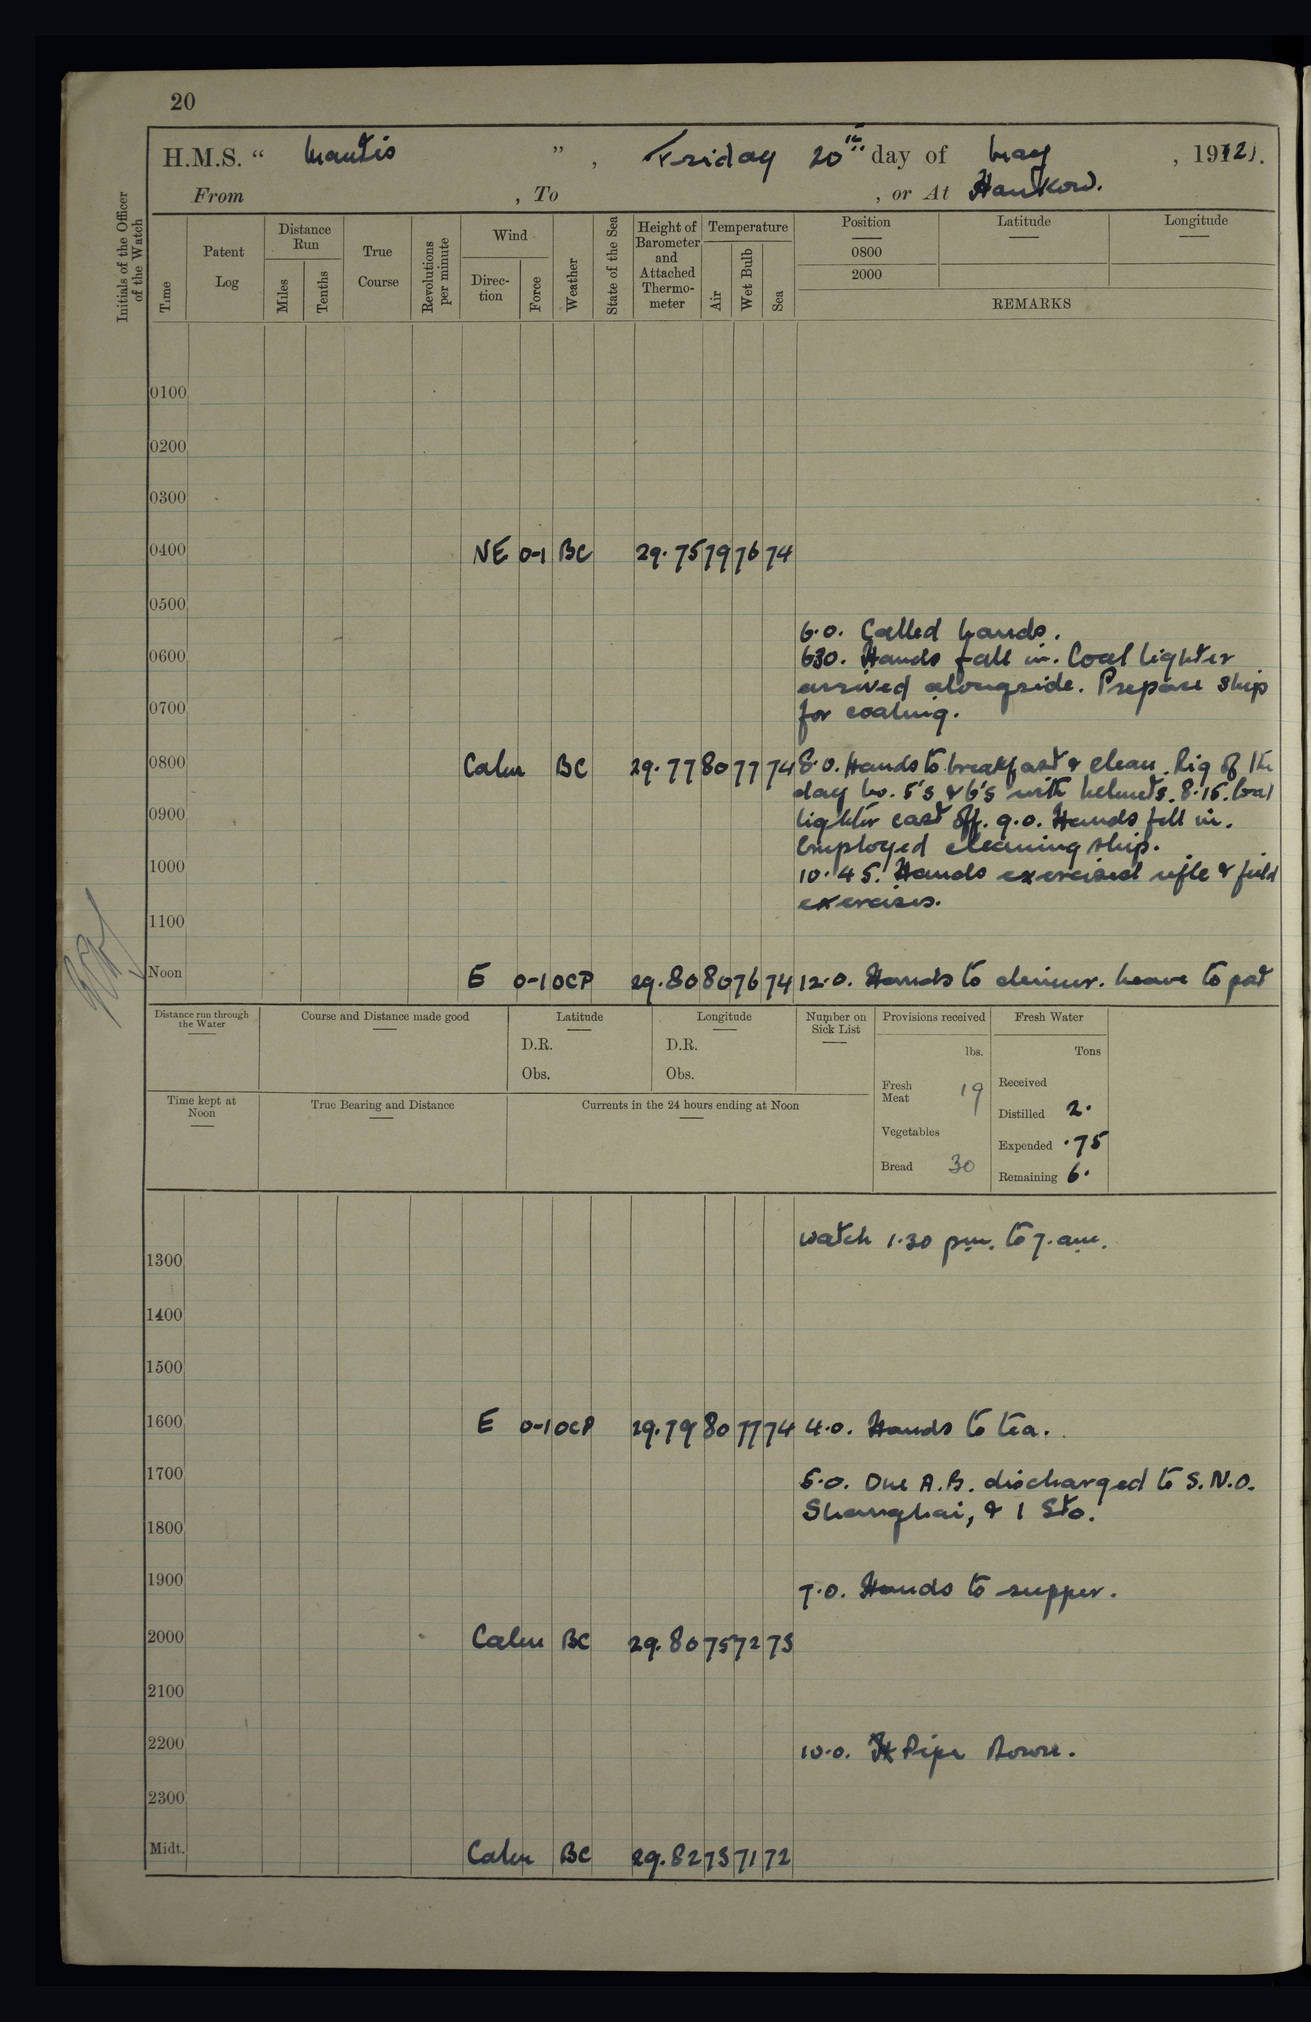 20
H.M.S. “ Mantis ” , Friday 20th day of May , 1921.
From , To , or At Hankow.
Initials of the Officer of the Watch
Time
Patent Log
Distance Run
Miles
Tenths
True Course
Revolutions per minute
Wind
Direction
Force
Weather
State of the Sea
Height of Barometer and Attached Thermometer
Temperature
Air
Wet Bulb
Sea
Position
0800
2000
Latitude
Longitude
REMARKS
0100
0200
0300
0400 NE 0-1 BC 29.75 79 76 74
0500
6.0. Called hands.
0600 630. Hands fall in. Coal lighter
arrived alongside. Prepare ship
0700 for coaling.
0800 Calm BC 29.77 80 77 74 8.0. Hands to breakfast & clean. Rig of the
day No. 5's & 6's with helmets. 8.15. Coal
0900 lighter cast off. 9.0. Hands fell in.
Employed cleaning ship.
1000 10.45. Hands exercised rifle & field
exercises.
1100
Noon E 0-1 OCP 29.80 80 76 74 12.0. Hands to dinner. Leave to pat
Distance run through the Water
Course and Distance made good
Latitude
D.R.
Obs.
Longitude
D.R.
Obs.
Number on Sick List
Provisions received
lbs.
Fresh Meat 19
Vegetables
Bread 30
Fresh Water
Tons
Received
Distilled 2.
Expended .75
Remaining 6.
Time kept at Noon
True Bearing and Distance
Currents in the 24 hours ending at Noon
watch 1.30 pm. to 7. am.
1300
1400
1500
1600 E 0-1 OCP 29.79 80 77 74 4.0. Hands to tea.
1700 5.0. One A.B. discharged to S.N.O.
Shanghai, & 1 Sto.
1800
1900 7.0. Hands to supper.
2000 Calm BC 29.80 75 72 73
2100
2200 10.0. Pipe Down.
2300
Midt. Calm BC 29.82 73 71 72